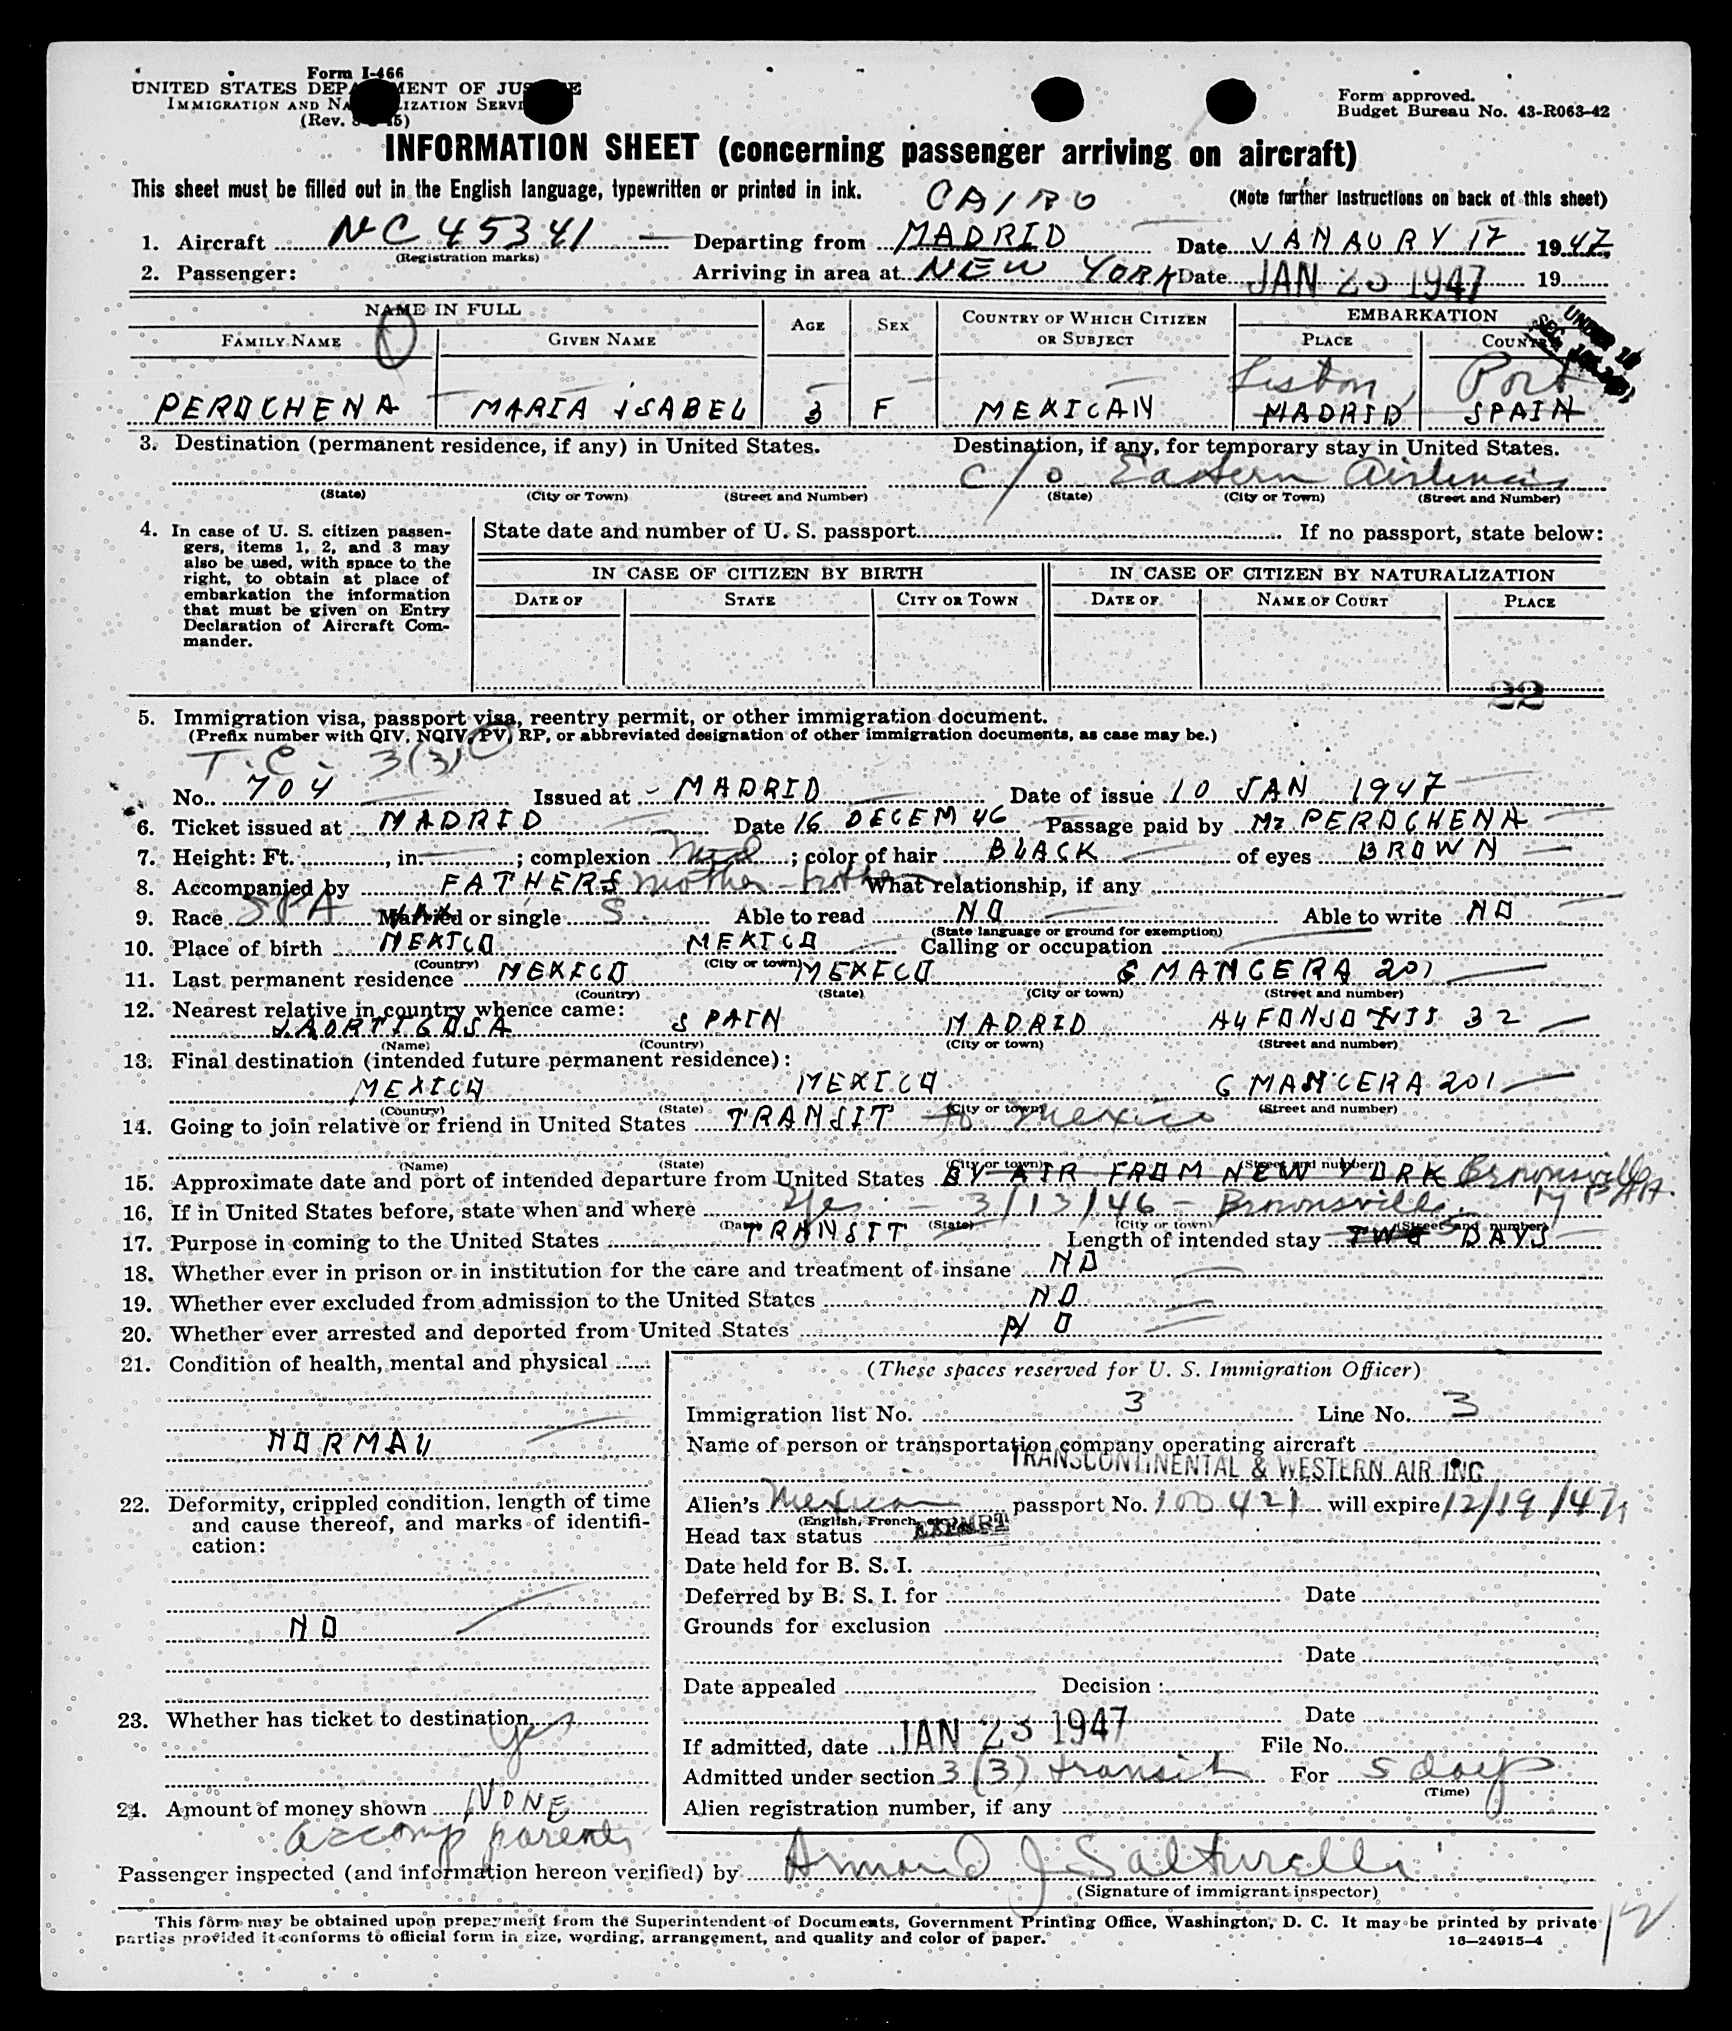 Form I-466
UNITED STATES DEPARTMENT OF JUSTICE
IMMIGRATION AND NATURALIZATION SERVICE
(Rev.
Form approved.
Budget Bureau No. 43-R063-42
INFORMATION SHEET (concerning passenger arriving on aircraft)
This sheet must be filled out in the English language, typewritten or printed in ink.
(Note further instructions on back of this sheet)
CAIRO
1. Aircraft NC 45341 Departing from MADRID Date JANAURY 17 1947
(Registration marks)
2. Passenger: Arriving in area at NEW YORK Date JAN 23 1947 19
NAME IN FULL AGE SEX COUNTRY OF WHICH CITIZEN OR SUBJECT EMBARKATION
FAMILY NAME GIVEN NAME PLACE COUNTRY
UNDER 16
Lisbon, Port
PEROCHENA MARIA ISABEL 3 F MEXICAN MADRID SPAIN
3. Destination (permanent residence, if any) in United States. Destination, if any, for temporary stay in United States.
c/o Eastern Airlines
(State) (City or Town) (Street and Number) (State) (City or Town) (Street and Number)
4. In case of U. S. citizen passengers, items 1, 2, and 3 may also be used, with space to the right, to obtain at place of embarkation the information that must be given on Entry Declaration of Aircraft Commander.
State date and number of U. S. passport If no passport, state below:
IN CASE OF CITIZEN BY BIRTH IN CASE OF CITIZEN BY NATURALIZATION
DATE OF STATE CITY OR TOWN DATE OF NAME OF COURT PLACE
22
5. Immigration visa, passport visa, reentry permit, or other immigration document.
(Prefix number with QIV, NQIV, PV, RP, or abbreviated designation of other immigration documents, as case may be.)
T.C. - 3(3)
No. 704 Issued at - MADRID Date of issue 10 JAN 1947
6. Ticket issued at MADRID Date 16 DECEM 46 Passage paid by Mr PEROCHENA
7. Height: Ft. , in. ; complexion Med ; color of hair BLACK of eyes BROWN
8. Accompanied by FATHERS mother - brother What relationship, if any
9. Race SPA Married or single S Able to read NO Able to write NO
(State language or ground for exemption)
10. Place of birth MEXICO MEXICO Calling or occupation
(Country) (City or town)
11. Last permanent residence MEXICO MEXICO G MANCERA 201
(Country) (State) (City or town) (Street and number)
12. Nearest relative in country whence came:
SPAIN MADRID ALFONSO XIII 32
(Name) (Country) (City or town) (Street and number)
13. Final destination (intended future permanent residence):
MEXICO MEXICO G MANCERA 201
(Country) (State) (City or town) (Street and number)
14. Going to join relative or friend in United States TRANSIT to Mexico
(Name) (State) (City or town) (Street and number)
15. Approximate date and port of intended departure from United States BY AIR FROM NEW YORK Brownsville
by PAA.
16. If in United States before, state when and where Yes - 3/13/46 - Brownsville.
(Date) (State) (City or town) (Street and number)
17. Purpose in coming to the United States TRANSIT Length of intended stay TWO 5 DAYS
18. Whether ever in prison or in institution for the care and treatment of insane NO
19. Whether ever excluded from admission to the United States NO
20. Whether ever arrested and deported from United States NO
21. Condition of health, mental and physical
NORMAL
22. Deformity, crippled condition, length of time and cause thereof, and marks of identification:
NO
23. Whether has ticket to destination
yes
24. Amount of money shown NONE
accomp parents
(These spaces reserved for U. S. Immigration Officer)
Immigration list No. 3 Line No. 3
Name of person or transportation company operating aircraft
TRANSCONTINENTAL & WESTERN AIR INC
Alien's Mexican passport No. 100421 will expire 12/19/47
(English, French, etc.)
Head tax status EXEMPT
Date held for B. S. I.
Deferred by B. S. I. for Date
Grounds for exclusion
Date
Date appealed Decision:
Date
If admitted, date JAN 23 1947 File No.
Admitted under section 3(3) transit For 5 days
(Time)
Alien registration number, if any
Passenger inspected (and information hereon verified) by Armond J Salturelli
(Signature of immigrant inspector)
This form may be obtained upon prepayment from the Superintendent of Documents, Government Printing Office, Washington, D. C. It may be printed by private
parties provided it conforms to official form in size, wording, arrangement, and quality and color of paper.
16—24915-4